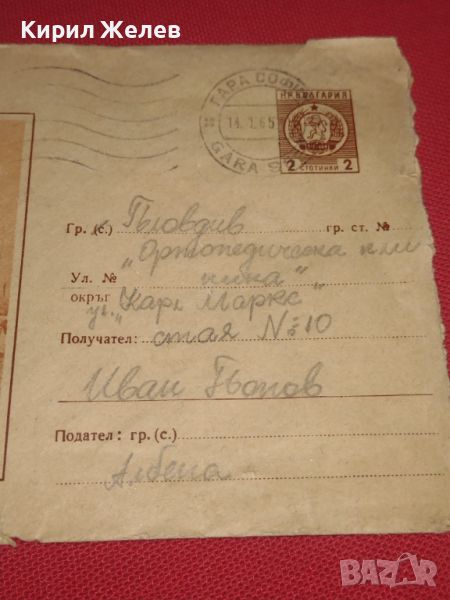 Кирил Желев
ГАРА СОФИ
14. 1. 65
GARA S
НР БЪЛГАРИЯ
2 СТОТИНКИ 2
Гр. (с.) Пловдив гр. ст. №
„Ортопедическа кли
Ул. № ника"
окръг ул. „Карл Маркс"
Получател: стая № 10
Иван Попов
Подател: гр. (с.)
Албена
BAZAR